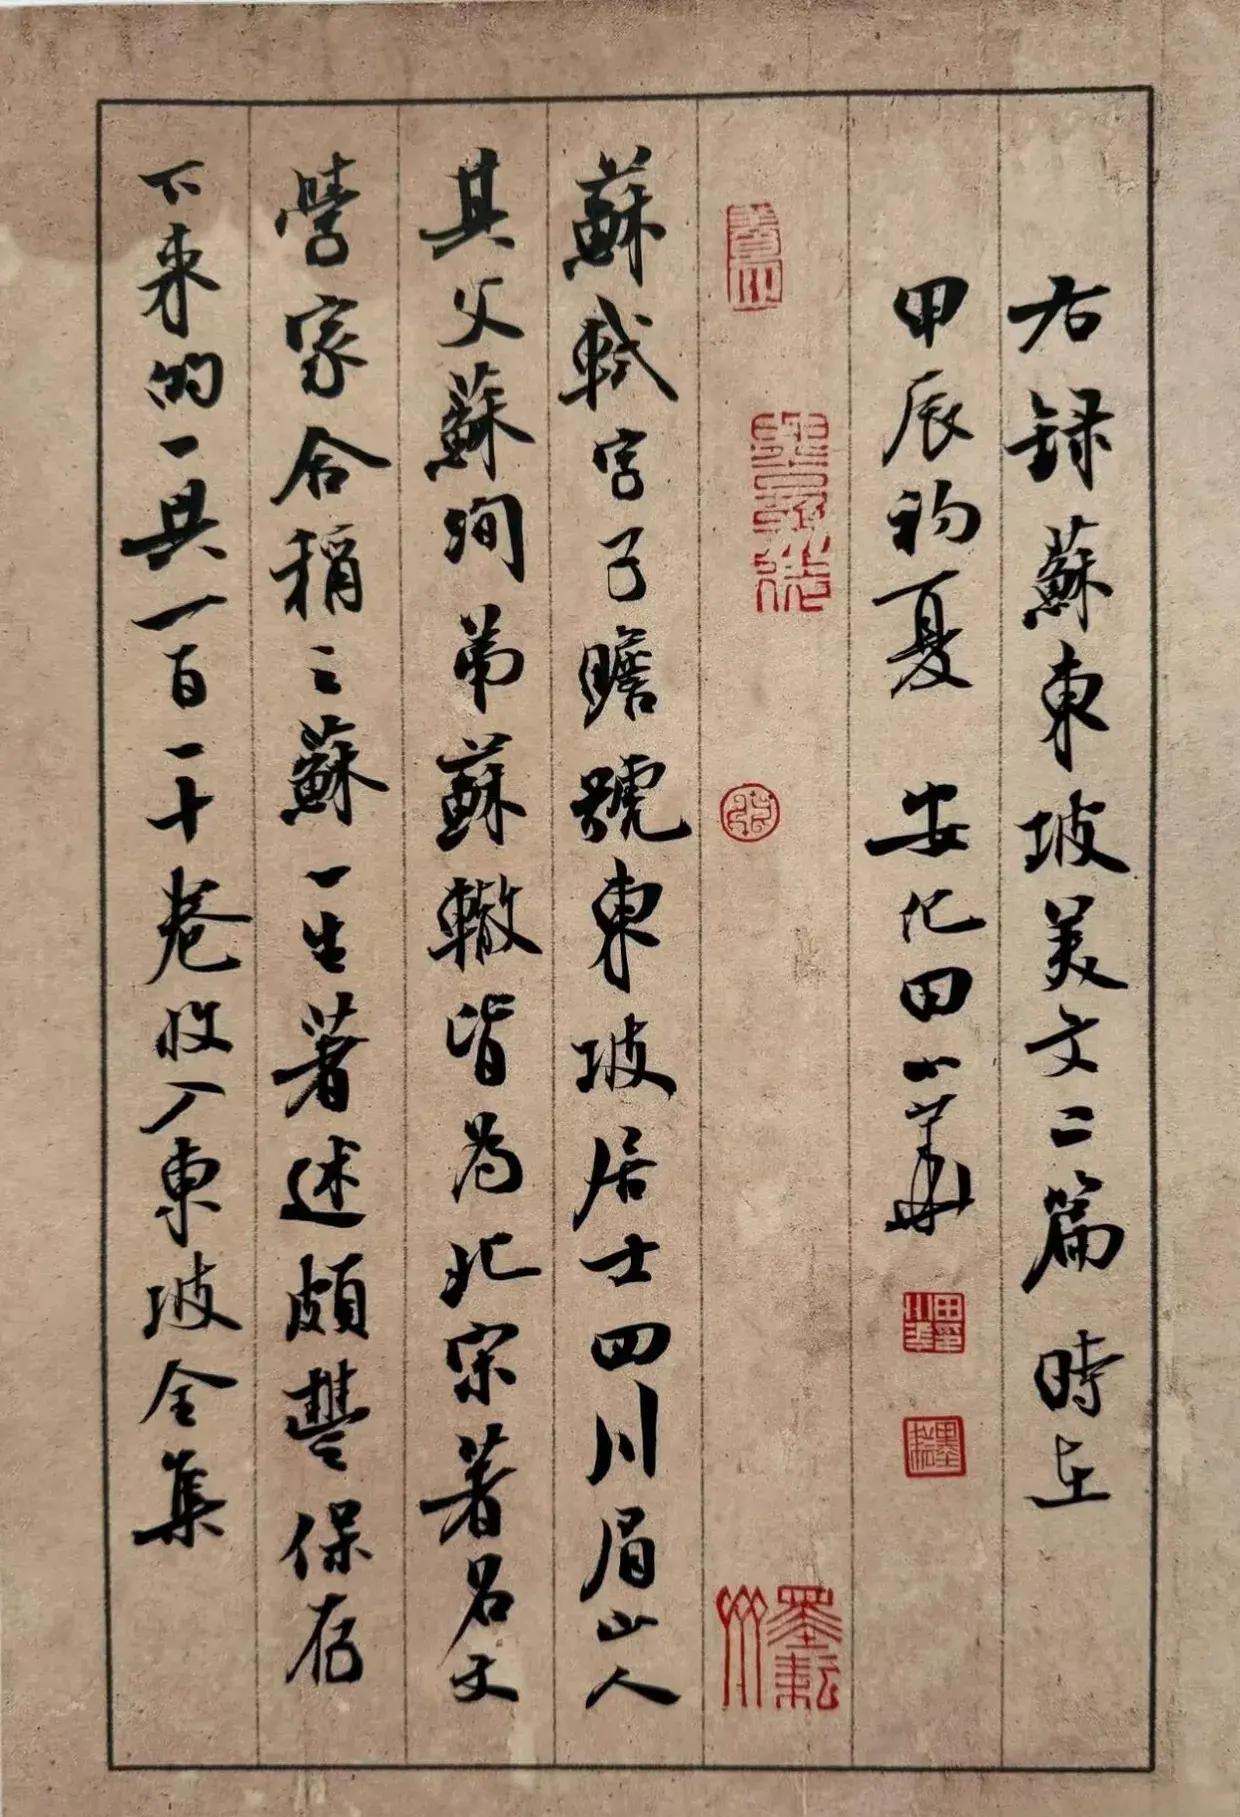 右録蘇東坡美文二篇時在
甲辰初夏安化田小華
蘇軾字子瞻號東坡居士四川眉山人
其父蘇洵弟蘇轍皆為北宋著名文
學家合稱三蘇一生著述頗豐保存
下來的一共一百一十卷收入東坡全集
墨耘